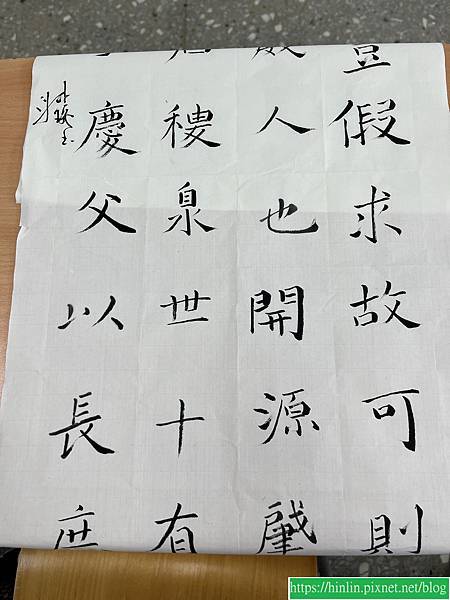 豈假求故可則
人也開源肇
稷泉世十有
慶父以長庶
https://hinlin.pixnet.net/blog